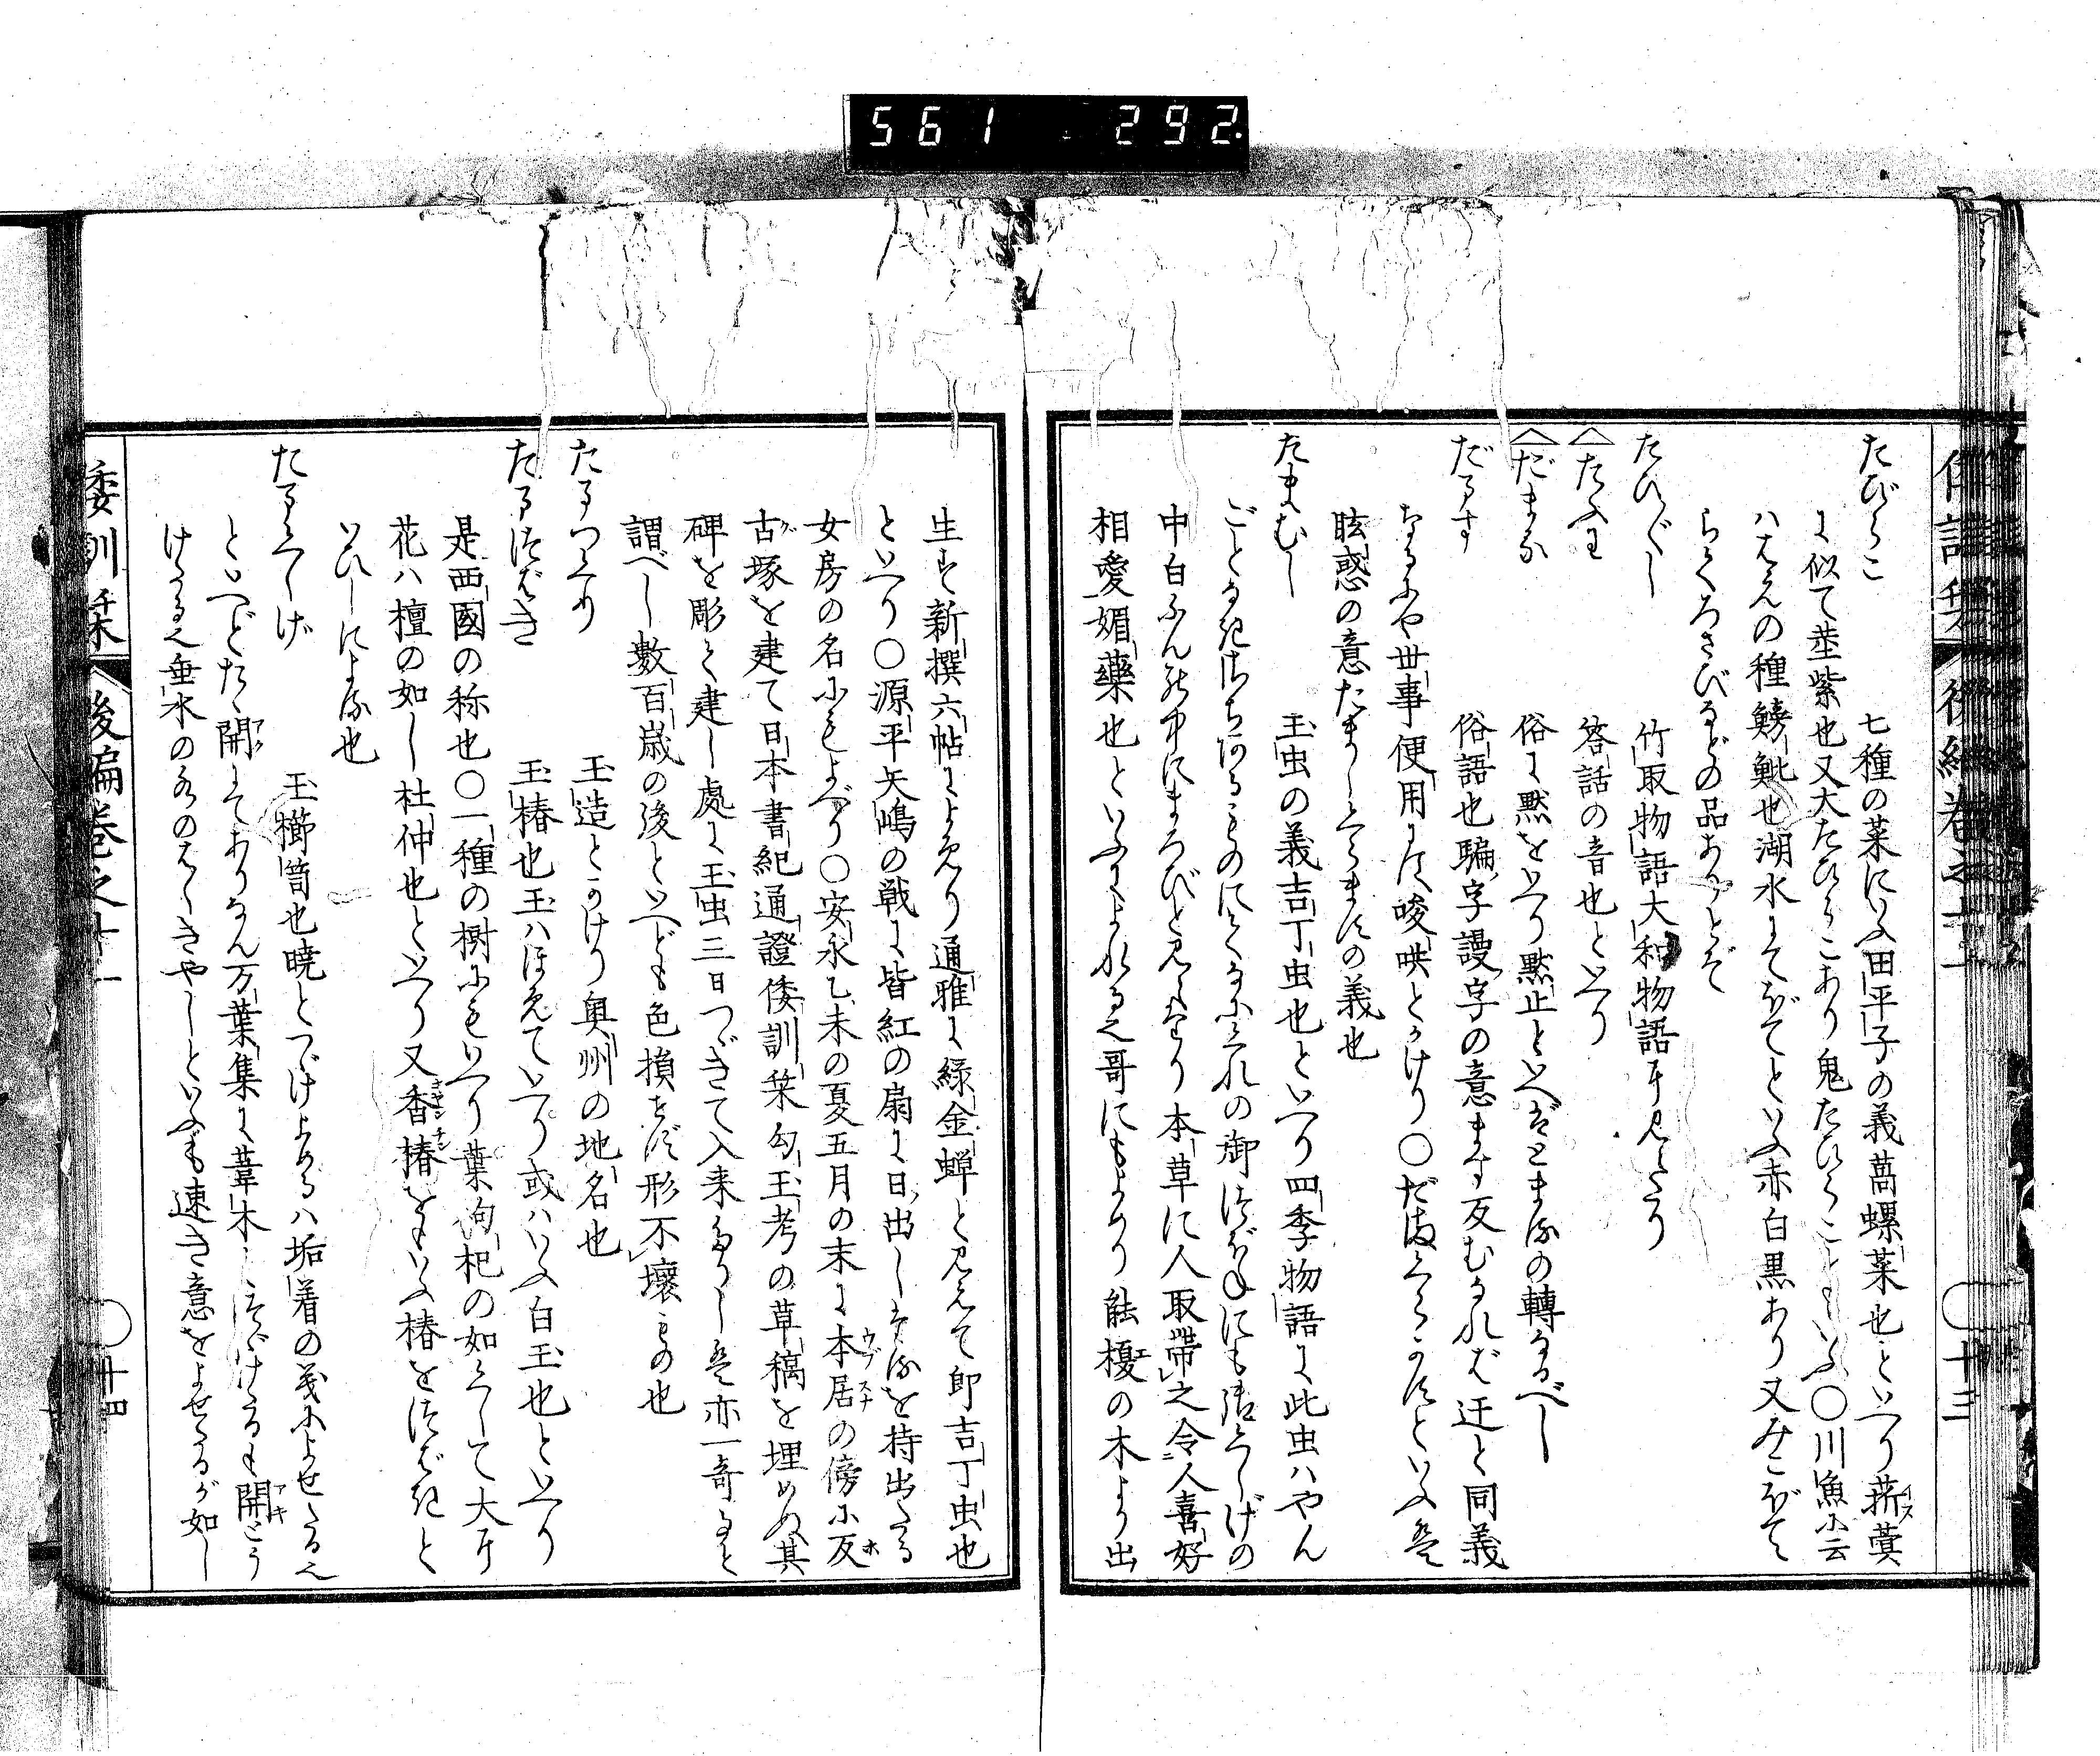 561 292
たびらこ 七種の菜にいふ田平子の義萵螺菜也といへり薺蓂
に似て莖紫也又大たひらこあり鬼たひらこともいふ〇川魚に云
ハえの種鰟魮也湖水にてぼてといふ赤白黒あり又みこぼて
らくろさびなどの品ありとぞ
たひ〴〵し 竹取物語大和物語に見えたり
たふわ 答話の音也といへり
だまる 俗に黙をいへり黙止といへばとまるの轉なるべし
だます 俗語也騙字謾字の意ます反むなれば迂と同義
なるにや世事便用に
眩惑の意たましくらますの義也
たまむし 玉虫の義吉丁虫也といへり四季物語に此虫ハやん
ごとなきたちあるものにとくにくれの御つぼねにも
中白ふんの中にまろびと見えたり本草に人取帶之令人喜好
相愛媚藥也といふによれる也哥にもよめり能榎の木より出
生す新撰六帖によめり通雅に緑金蝉と見えて即吉丁虫也
といへり〇源平矢嶋の戦に皆紅の扇に日出しせるを持出たる
女房の名にもよべり〇安永乙未の夏五月の末に本居の傍に反
古塚を建て日本書紀通證倭訓栞勾玉考の草稿を埋めぬ其
碑を彫て建し處に玉虫三日つゞきて入来ありし是亦一奇事と
謂べし數百歳の後といへども色損せず形不壞もの也
たまつくり 玉造とかけり奥州の地名也
たまつばき 玉椿也玉ハほめていへり或ハいふ白玉也といへり
是西國の称也〇一種の樹にもいへり葉枸杞の如くして大に
花ハ檀の如し杜仲也といへり又香椿をもいふ椿をつばきと
いひしによる也
たまくしげ 玉櫛笥也暁とつゞけよめるハ垢着の義によせたる也
といへどたゞ開にてありなん万葉集に葦木につゞけたるも開とう
けたる也垂水の水のはしきやしといふも速き意をよせたるが如し
倭訓栞 後編巻之十一 十三
倭訓栞 後編巻之十一 十四